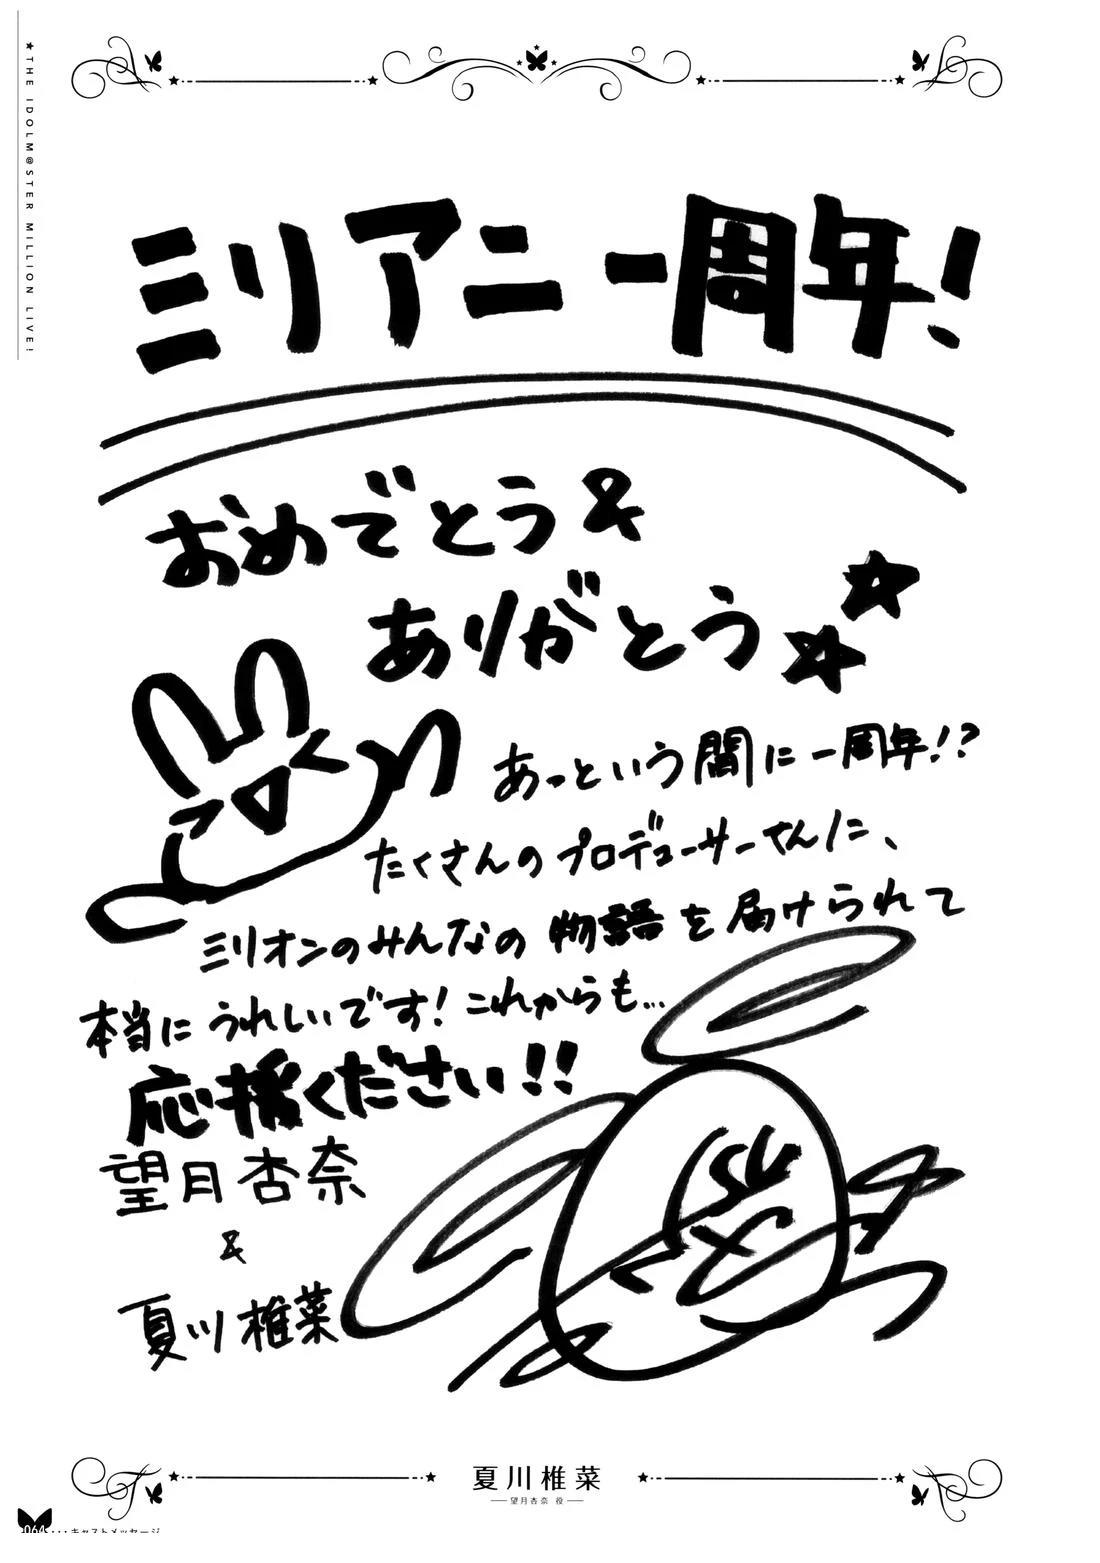 ★THE IDOLM@STER MILLION LIVE!
ミリアニ一周年!
おめでとう&
ありがとう
あっという間に一周年!?
たくさんのプロデューサーさんに、
ミリオンのみんなの物語を届けられて
本当にうれしいです!これからも…
応援ください!!
望月杏奈
&
夏川椎菜
夏川椎菜
望月杏奈 役
064・・・キャストメッセージ